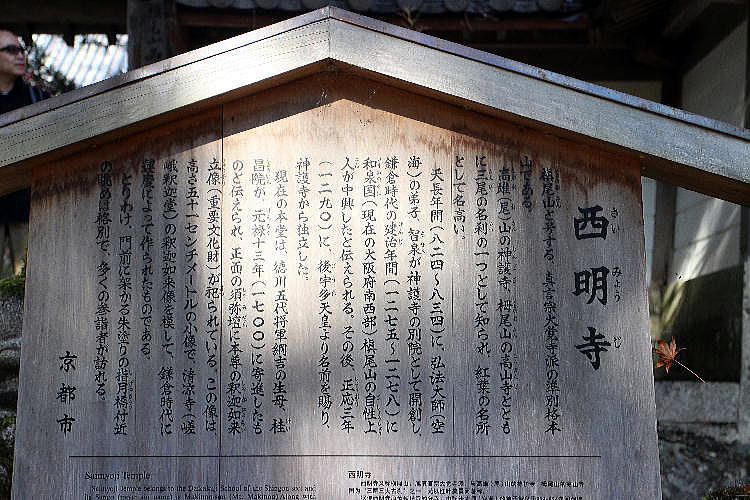 西明寺
さい みょう じ
槙尾山と号する、真言宗大覚寺派の準別格本
山である。
高雄(尾)山の神護寺、栂尾山の高山寺ととも
に三尾の名刹の一つとして知られ、紅葉の名所
として名高い。
天長年間(八二四~八三四)に、弘法大師(空
海)の弟子、智泉が神護寺の別院として開創し、
鎌倉時代の建治年間(一二七五~一二七八)に
和泉国(現在の大阪府南西部)槙尾山の自性上
人が中興したと伝えられる。その後、正応三年
(一二九〇)に、後宇多天皇より名前を賜り、
神護寺から独立した。
現在の本堂は、徳川五代将軍綱吉の生母、桂
昌院が、元禄十三年(一七〇〇)に寄進したも
のと伝えられ、正面の須弥壇に本尊の釈迦如来
立像(重要文化財)が祀られている。この像は
高さ五十一センチメートルの小像で、清凉寺(嵯
峨釈迦堂)の釈迦如来像を模して、鎌倉時代に
運慶によって作られたものである。
とりわけ、門前に架かる朱塗りの指月橋付近
の眺めは格別で、多くの参詣者が訪れる。
京都市
Saimyoji Temple
Saimyoji Temple belongs to the Daikakuji School of the Shingon sect and
西明寺